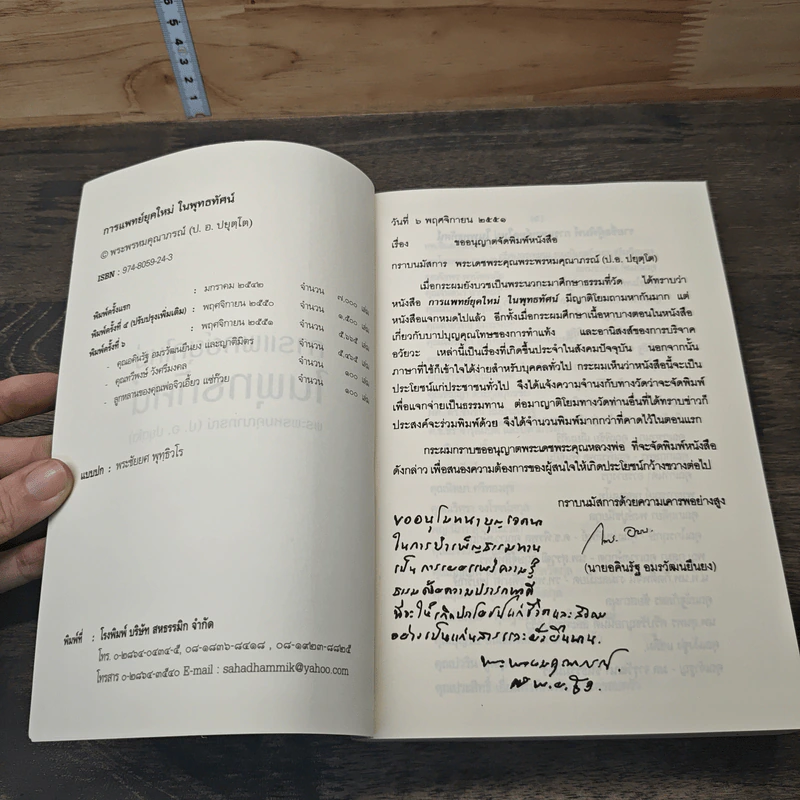 การแพทย์ยุคใหม่ ในพุทธทัศน์
© พระพรหมคุณาภรณ์ (ป. อ. ปยุตฺโต)
ISBN : 974-8059-24-3
พิมพ์ครั้งแรก : มกราคม ๒๕๔๒ จำนวน ๗,๐๐๐ เล่ม
พิมพ์ครั้งที่ ๕ (ปรับปรุงเพิ่มเติม) : พฤศจิกายน ๒๕๕๐ จำนวน ๑,๕๐๐ เล่ม
พิมพ์ครั้งที่ ๖ : พฤศจิกายน ๒๕๕๑ จำนวน ๕,๖๖๕ เล่ม
- คุณอคินรัฐ อมรวัฒนยืนยง และญาติมิตร จำนวน ๕,๔๖๕ เล่ม
- คุณทวีพงษ์ วังศรีมงคล จำนวน ๑๐๐ เล่ม
- ลูกหลานของคุณพ่อจิวเอี้ยว แซ่ก๊วย จำนวน ๑๐๐ เล่ม
แบบปก : พระชัยยศ พุทฺธิวโร
พิมพ์ที่ : โรงพิมพ์ บริษัท สหธรรมิก จำกัด
โทร. ๐-๒๘๖๔-๐๔๓๔-๕, ๐๘-๑๘๓๖-๘๔๑๘ , ๐๘-๑๙๒๓-๘๘๒๕
โทรสาร ๐-๒๘๖๔-๓๕๔๐ E-mail : sahadhammik@yahoo.com
วันที่ ๖ พฤศจิกายน ๒๕๕๑
เรื่อง ขออนุญาตจัดพิมพ์หนังสือ
กราบนมัสการ พระเดชพระคุณพระพรหมคุณาภรณ์ (ป.อ. ปยุตฺโต)
เมื่อกระผมยังบวชเป็นพระนวกะมาศึกษาธรรมที่วัด ได้ทราบว่า
หนังสือ การแพทย์ยุคใหม่ ในพุทธทัศน์ มีญาติโยมถามหากันมาก แต่
หนังสือแจกหมดไปแล้ว อีกทั้งเมื่อกระผมศึกษาเนื้อหาบางตอนในหนังสือ
เกี่ยวกับบาปบุญคุณโทษของการทำแท้ง และอานิสงส์ของการบริจาค
อวัยวะ เหล่านี้เป็นเรื่องที่เกิดขึ้นประจำในสังคมปัจจุบัน นอกจากนั้น
ภาษาที่ใช้ก็เข้าใจได้ง่ายสำหรับบุคคลทั่วไป กระผมเห็นว่าหนังสือนี้จะเป็น
ประโยชน์แก่ประชาชนทั่วไป จึงได้แจ้งความจำนงกับทางวัดว่าจะจัดพิมพ์
เพื่อแจกจ่ายเป็นธรรมทาน ต่อมาญาติโยมทางวัดท่านอื่นที่ได้ทราบข่าวก็
ประสงค์จะร่วมพิมพ์ด้วย จึงได้จำนวนพิมพ์มากกว่าที่คาดไว้ในตอนแรก
กระผมกราบขออนุญาตพระเดชพระคุณหลวงพ่อ ที่จะจัดพิมพ์หนังสือ
ดังกล่าว เพื่อสนองความต้องการของผู้สนใจให้เกิดประโยชน์กว้างขวางต่อไป
กราบนมัสการด้วยความเคารพอย่างสูง
(นายอคินรัฐ อมรวัฒนยืนยง)
ขออนุโมทนาบุญเจตนา
ในการบำเพ็ญธรรมทาน
เป็นการเผยแพร่ความรู้
ธรรมด้วยความปรารถนาดี
ที่จะให้เกิดประโยชน์แก่ชีวิตและสังคม
อย่างเป็นแก่นสารและยั่งยืนนาน.
พระพรหมคุณาภรณ์
5 4 3 2 1